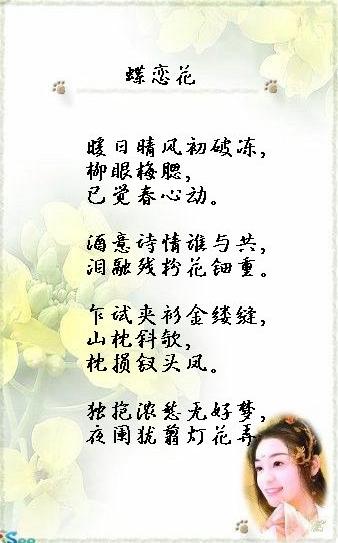 蝶恋花
暖日晴风初破冻，
柳眼梅腮，
已觉春心动。
酒意诗情谁与共，
泪融残粉花钿重。
乍试夹衫金缕缝，
山枕斜欹，
枕损钗头凤。
独抱浓愁无好梦，
夜阑犹剪灯花弄
iSee